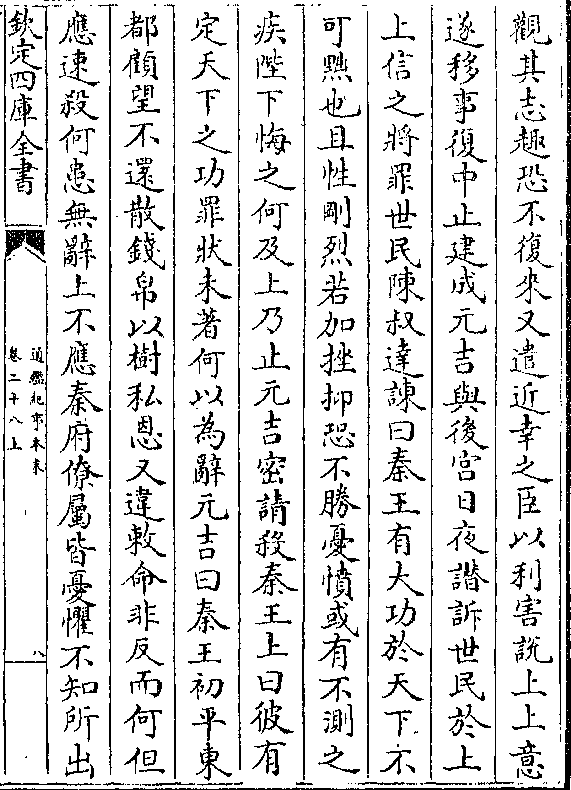 觀其志趣恐不復來又遣近幸之臣以利害說上上意
遂移事復中止建成元吉與後宮日夜譖訴世民於上
上信之將罪世民陳叔達諫曰秦王有大功於天下不
可黜也且性剛烈若加挫抑恐不勝憂憤或有不測之
疾陛下悔之何及上乃止元吉密請殺秦王上曰彼有
定天下之功罪狀未著何以為辭元吉曰秦王初平東
都顧望不還散錢帛以樹私恩又違敕命非反而何但
應速殺何患無辭上不應秦府僚屬皆憂懼不知所出
欽定四庫全書
通鑑紀事本末
卷二十八上
八